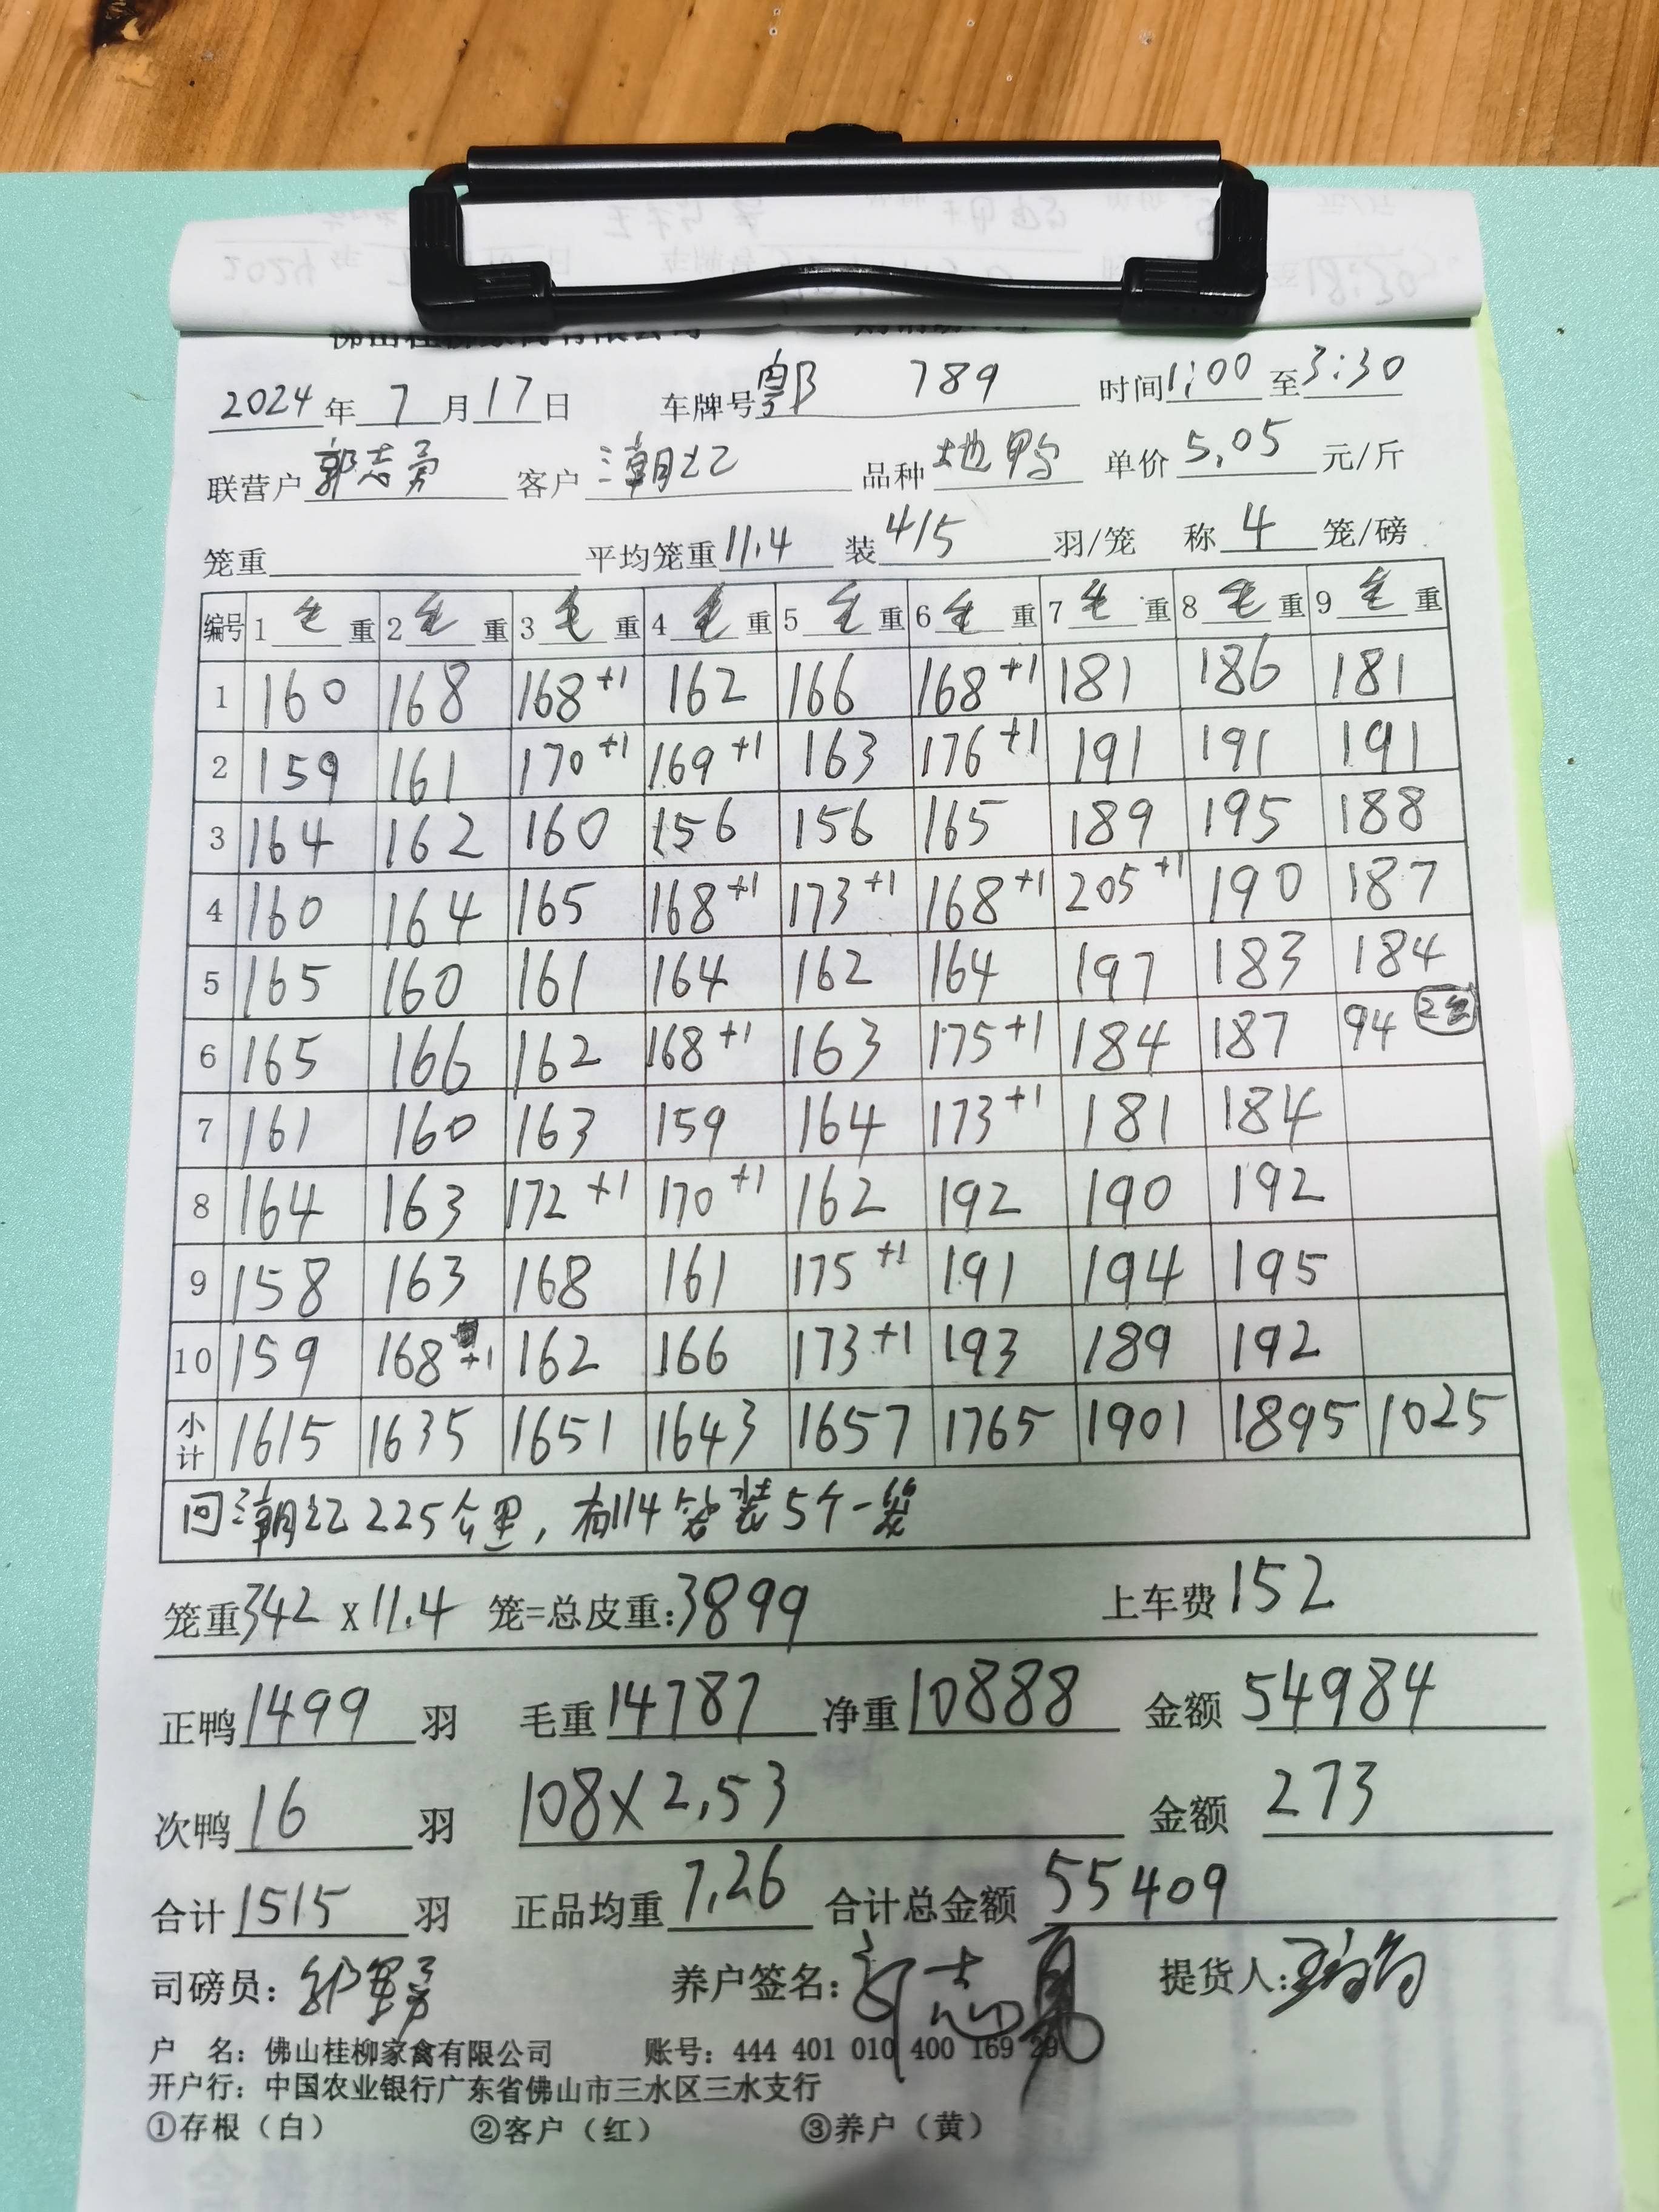 佛山桂柳家禽有限公司
2024年7月17日 车牌号粤 789 时间1:00至3:30
联营户郭志勇 客户潮江 品种土地鸭 单价5.05元/斤
笼重 平均笼重11.4 装4/5羽/笼 称4笼/磅
编号 1毛重 2毛重 3毛重 4毛重 5毛重 6毛重 7毛重 8毛重 9毛重
1 160 168 168+1 162 166 168+1 181 186 181
2 159 161 170+1 169+1 163 176+1 191 191 191
3 164 162 160 156 156 165 189 195 188
4 160 164 165 168+1 173+1 168+1 205+1 190 187
5 165 160 161 164 162 164 197 183 184
6 165 166 162 168+1 163 175+1 184 187 94 2笼
7 161 160 163 159 164 173+1 181 184
8 164 163 172+1 170+1 162 192 190 192
9 158 163 168 161 175+1 191 194 195
10 159 168+1 162 166 173+1 193 189 192
小计 1615 1635 1651 1643 1657 1765 1901 1895 1025
回潮江225公里,有114笼装5个一笼
笼重342X11.4笼=总皮重:3899 上车费152
正鸭1499羽 毛重14787 净重10888 金额54984
次鸭16羽 108X2.53 金额273
合计1515羽 正品均重7.26 合计总金额55409
司磅员: 养户签名:郭志勇 提货人:
户 名:佛山桂柳家禽有限公司 账号:444 401 010 400 169 29
开户行:中国农业银行广东省佛山市三水区三水支行
①存根(白) ②客户(红) ③养户(黄)